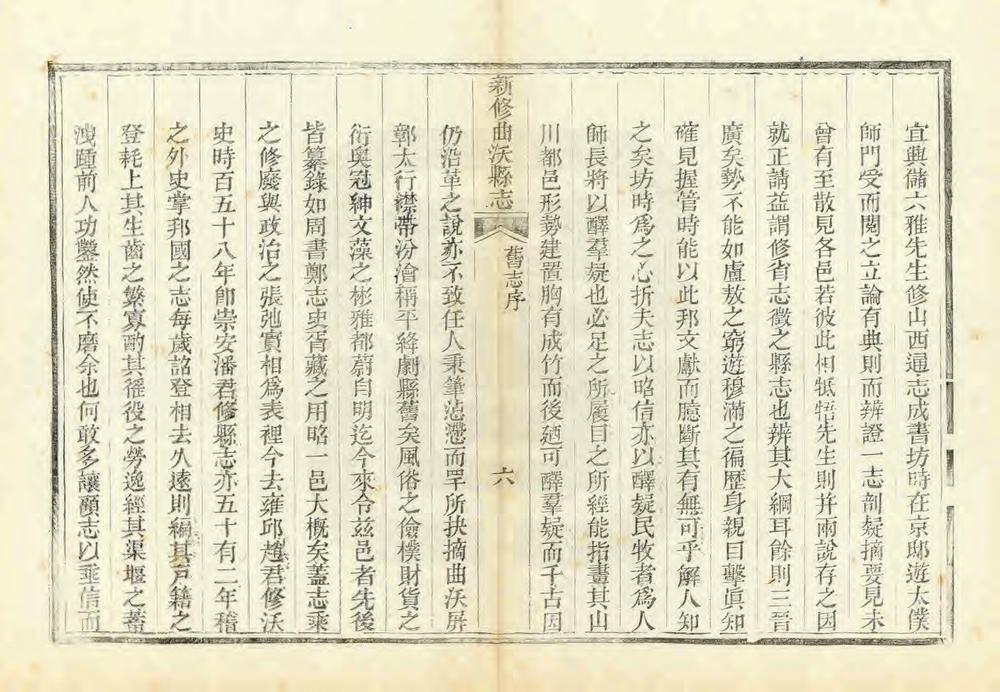 宜興儲六雅先生修山西通志成書坊時在京邸遊太僕
師門受而閱之立論有典則而辨證一志剖疑摘要見未
曾有至散見各邑若彼此相牴牾先生則幷兩說存之因
就正請益謂修省志徵之縣志也辨其大綱耳餘則三晉
廣矣勢不能如盧敖之窮遊穆滿之徧歷身親目擊眞知
確見握管時能以此邦文獻而臆斷其有無可乎解人知
之矣坊時爲之心折夫志以昭信亦以釋疑民牧者爲人
師長將以釋羣疑也必足之所履目之所經能指畫其山
川都邑形勢建置胸有成竹而後廼可釋羣疑而千古因
新修曲沃縣志
舊志序
六
仍沿革之說亦不致任人秉筆慫慂而罕所抉摘曲沃屏
鄣太行襟帶汾澮稱平絳劇縣舊矣風俗之儉樸財貨之
衍輿冠紳文藻之彬雅都蔚自明迄今來令茲邑者先後
皆纂錄如周書鄭志史胥藏之用昭一邑大槪矣蓋志乘
之修廢與政治之張弛實相爲表裡今去雍邱趙君修沃
史時百五十八年卽崇安潘君修縣志亦五十有二年稽
之外史掌邦國之志每歲詔登相去久遠則編其戶籍之
登耗上其生齒之繁寡酌其徭役之勞逸經其渠堰之蓄
洩踵前人功鑿然使不磨余也何敢多讓顧志以垂信而